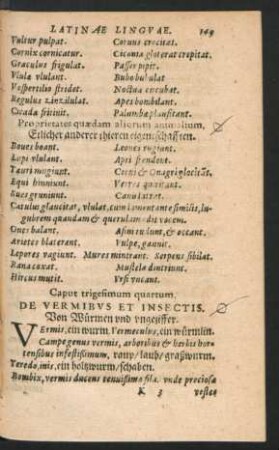 LATINAE LINGVAE. 149
Vultur pulpat. Coruus crocitat.
Cornix cornicatur. Ciconia gloterat crepitat.
Graculus frigulat. Passer pipit.
Vlula vlulant. Bubo bubulat
Vespertilio stridet. Noctua cucubat.
Regulus zinzilulat. Apes bombilant.
Cicada fritinit. Palumbæ plausitant.
Proprietates quædam aliorum animalium.
Etlicher anderer thieren eigenschafften.
Boues boant. Leones rugiunt.
Lupi vlulant. Apri frendent.
Tauri mugiunt. Cerui & Onagri glocitāt.
Equi hinniunt. Verres quiritant.
Sues grunniunt. Canis latrat.
Catulus glaucitat, vlulat, cum lamentante similis, lu-
gubrem quandam & querulam edit vocem.
Oues balant. Asini rudunt, & oncant.
Arietes blaterant. Vulpe, gannit.
Lepores vagiunt. Mures mintrant. Serpens sibilat.
Rana coxat. Mustela dintriunt
Hircus mutit. Vrsi vncant.
Caput trigesimum quartum.
DE VERMIBVS ET INSECTIS.
Von Würmen vnd vngeziffer.
VErmis, ein wurm, Vermeculus, ein würmlin.
Campe genus vermis, arboribus & herbis hor-
tensibus infestissimum, raup / laub / graßwurm.
Teredo, mis, ein holtzwurm / schaben.
Bombix, vermis ducens tenuissima fila, vnde preciosa
K 3 vestes